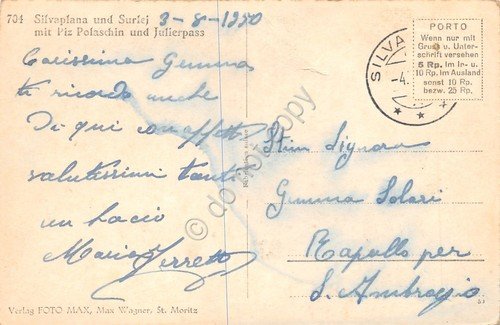 704 Silvaplana und Surlej
mit Piz Polaschin und Julierpass
3-8-1950
Carissima Gemma
ti ricordo anche
Di qui con affetto
salutissimi tanti
un bacio
Maria Ferretto
Verlag FOTO MAX, Max Wagner, St. Moritz
SILVA
-4.
PORTO
Wenn nur mit
Gruß u. Unter-
schrift versehen
5 Rp. im In- u.
10 Rp. im Ausland
sonst 10 Rp.
bezw. 25 Rp.
Stim Signora
Gemma Solari
Rapallo per
S. Ambrogio
do not copy